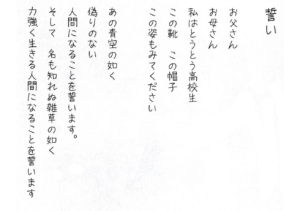 誓い
お父さん
お母さん
私はとうとう高校生
この靴　この帽子
この姿もみてください
あの青空の如く
偽りのない
人間になることを誓います。
そして　名も知れぬ雑草の如く
力強く生きる人間になることを誓います